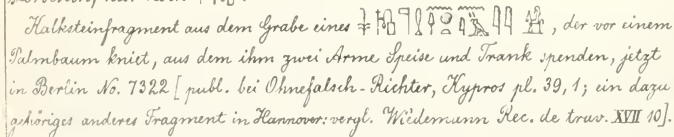 Kalksteinfragment aus dem Grabe eines , der vor einem
Palmbaum kniet, aus dem ihm zwei Arme Speise und Trank spenden, jetzt
in Berlin No. 7322 [publ. bei Ohnefalsch-Richter, Kypros pl. 39, 1; ein dazu
gehöriges anderes Fragment in Hannover: vergl. Wiedemann Rec. de trav. XVII 10].